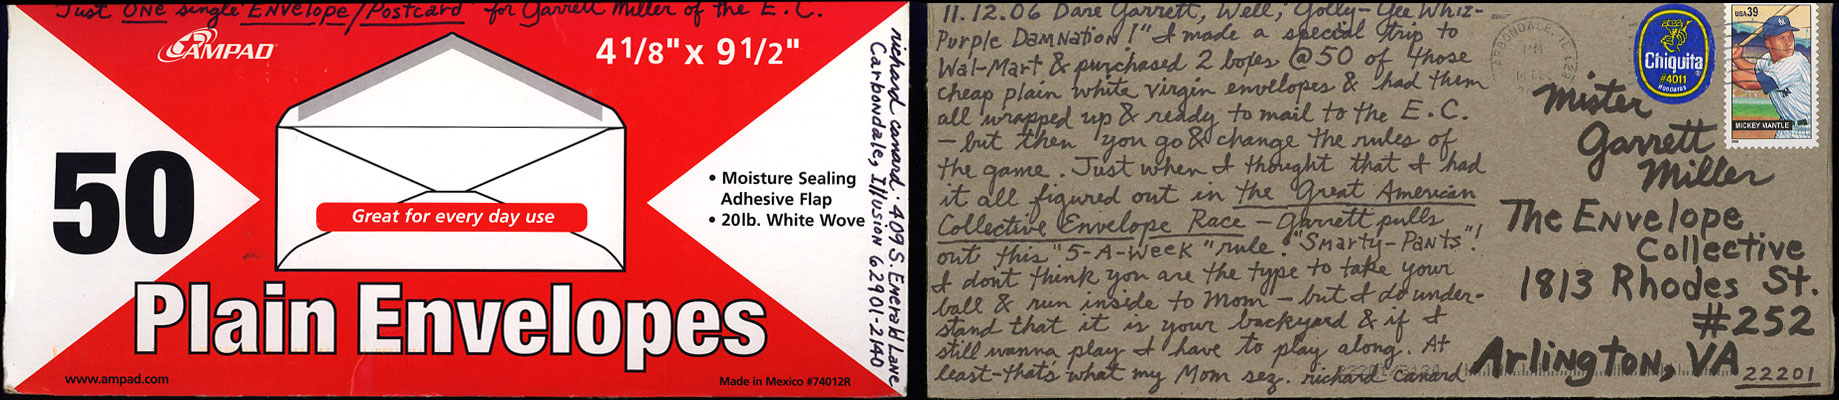 Just ONE single "ENVElope/Postcard" for Garrett Miller of the E.C.
AMPAD
4 1/8" x 9 1/2"
50
Great for every day use
• Moisture Sealing
Adhesive Flap
• 20lb. White Wove
Plain Envelopes
www.ampad.com
Made in Mexico #74012R
richard canard · 409 S. Emerald Lane
Carbondale, Illusion 62901-2140
11.12.06 Dare Garrett, Well, "Golly-Gee Whiz-
Purple DamNation!" I made a special trip to
Wal-Mart & purchased 2 boxes @50 of those
cheap plain white virgin envelopes & had them
all wrapped up & ready to mail to the E.C.
—but then you go & change the rules of
the game. Just when I thought that I had
it all figured out in the Great American
Collective Envelope Race — Garrett pulls
out this "5-A-Week" rule. "Smarty-Pants"!
I dont think you are the type to take your
ball & run inside to Mom — but I do under-
stand that it is your backyard & if I
still wanna play I have to play along. At
least-thats what my Mom sez. richard canard
CARBONDALE, IL
PM
Chiquita
#4011
Honduras
USA 39
MICKEY MANTLE
Mister
Garrett
Miller
The Envelope
Collective
1813 Rhodes St.
#252
Arlington, VA
22201